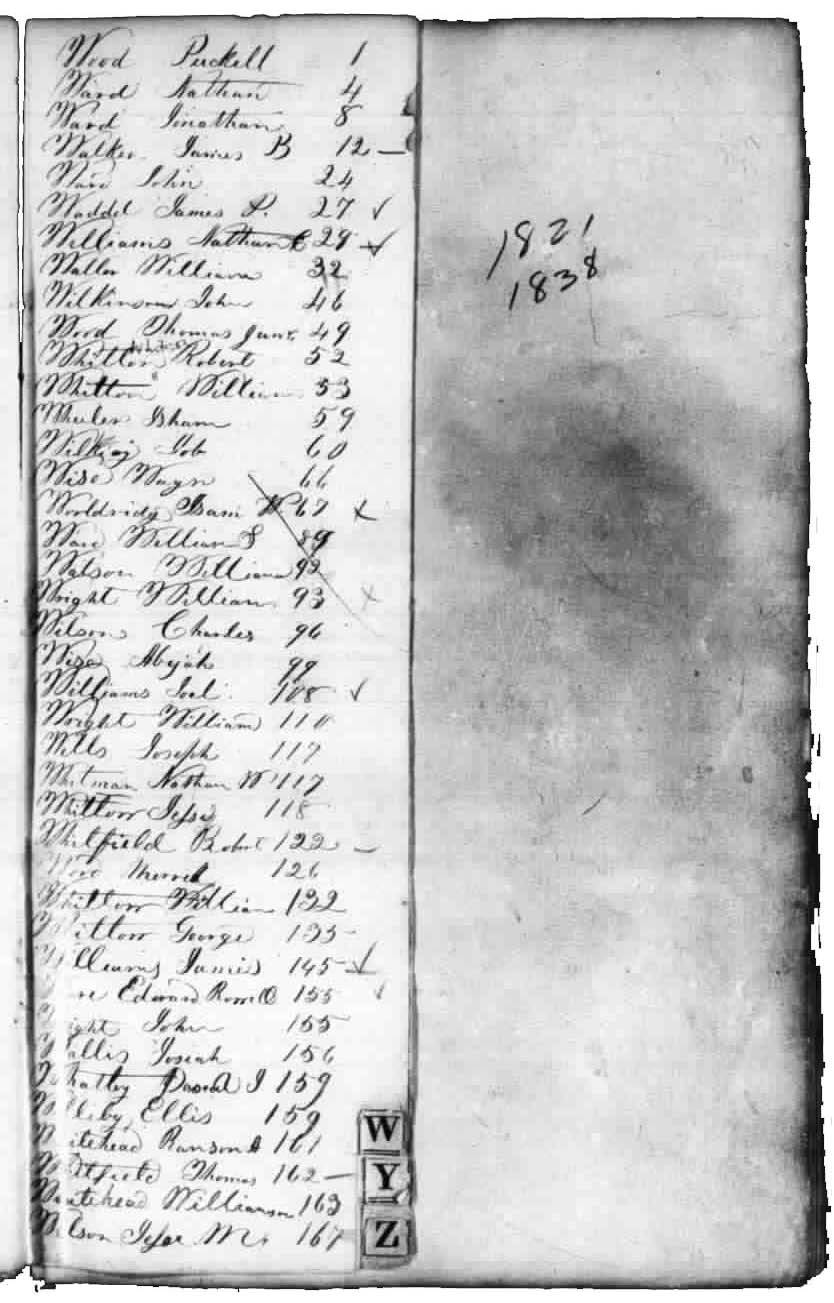 Wood Puckett 1
Ward Nathan 4
Ward Jonathan 8
Walker James B 12 —
Ware John 24
Waddel James P. 27 ✓
Williams Nathan C 29 ✓
Waller William 32
Wilkinson John 46
Wood Thomas Junr 49
Whitlow Robert 52
Whitton William 53
Wheeler Isham 59
Job 60
Wise 66
Wooldridge Isam W 67 x
Ware William S 89
Watson William 92
Wright William 93 x
Wilson Charles 96
Wise Abijah 99
Williams Joel 108 ✓
Wright William 110
Wills Joseph 117
Whitman Nathan W 117
Whitlow Jesse 118
Whitfield Robert 122 —
126
Whitlow William 132
itlow George 135
illiams James 145 ✓
re Edward 155 ✓
ight John 155
allis Josiah 156
hatley J 159
Ellis 159
itehead Ranson A 161
itfield Thomas 162 —
itehead Williamson 163
lson Jesse M. 167
W
Y
Z
1821
1838